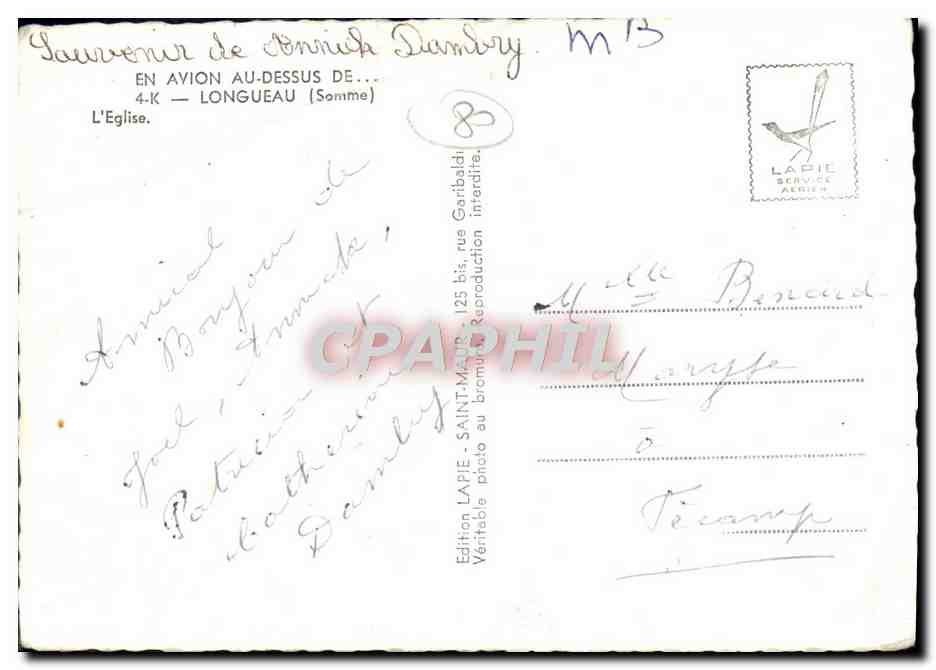 Souvenir de Annick Dambry. MB
EN AVION AU-DESSUS DE...
4-K — LONGUEAU (Somme)
L'Eglise.
80
LAPIE
SERVICE
AERIEN
Amical
Bonjour de
Joël, Annick,
Patricia et
Catherine
Dambry
Edition LAPIE - SAINT-MAUR, 125 bis, rue Garibaldi
Véritable photo au bromure. Reproduction interdite.
CPAPHIL
Melle Benard
Maryse
à
Fécamp